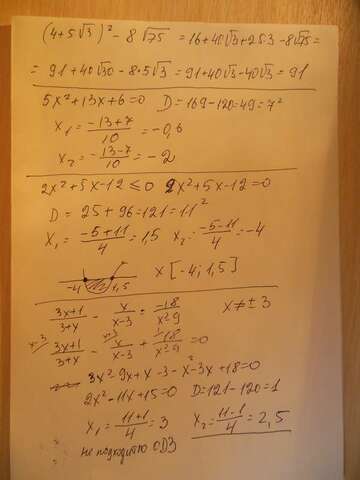 (4+5√3)² - 8√75 = 16+40√3+25·3-8√75=
= 91+40√30-8·5√3=91+40√3-40√3=91
5x²+13x+6=0 D=169-120=49=7²
x₁=(-13+7)/10=-0,6
x₂=(-13-7)/10=-2
2x²+5x-12≤0 2x²+5x-12=0
D=25+96=121=11²
x₁=(-5+11)/4=1,5 x₂=(-5-11)/4=-4
-4 1,5 x[-4;1,5]
(3x+1)/(3+x) - x/(x-3) = -18/(x²-9) x≠±3
x-3 x+3 1
(3x+1)/(3+x) - x/(x-3) + 18/(x²-9) =0
3x²-9x+x-3-x²-3x+18=0
2x²-11x+15=0 D=121-120=1
x₁=(11+1)/4=3 x₂=(11-1)/4=2,5
не подходит по ОДЗ